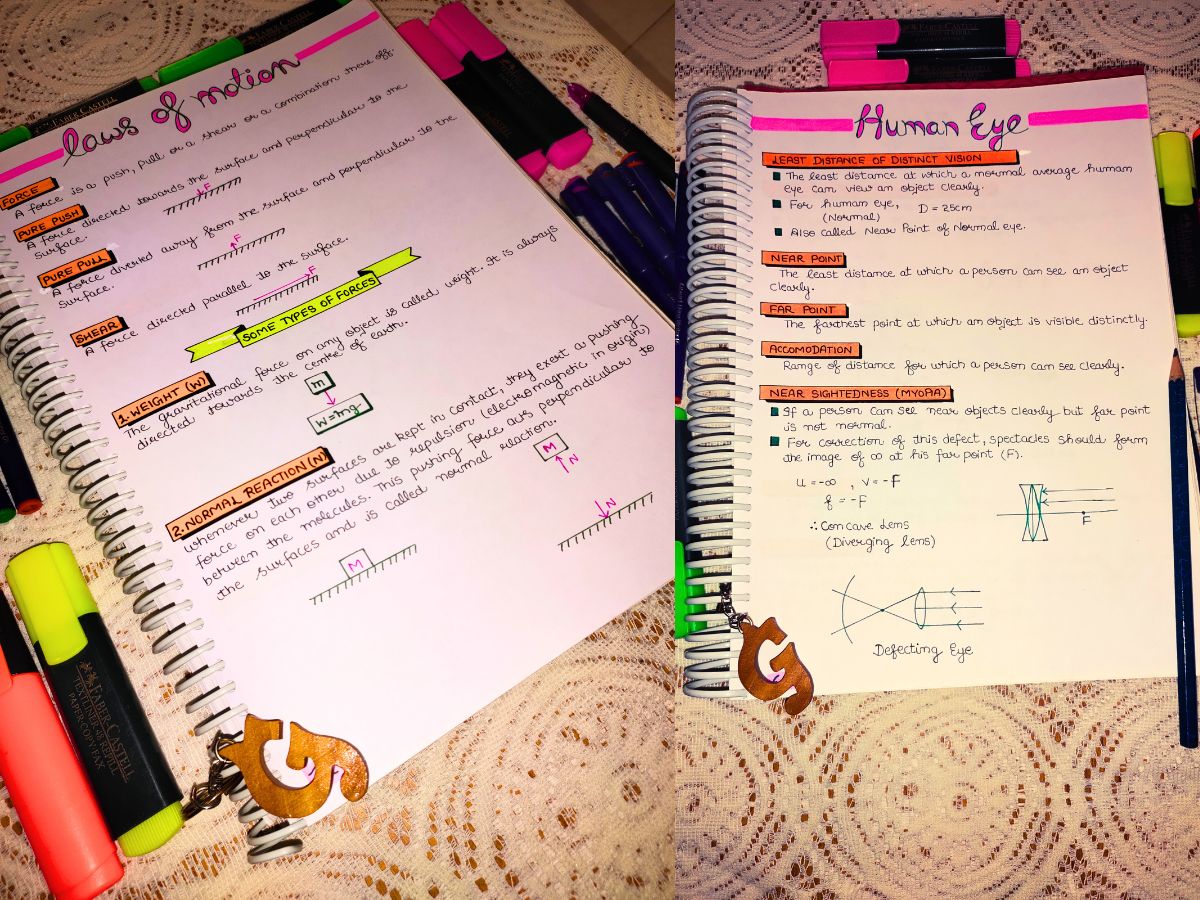 Laws of motion
FORCE
A force is a push, pull or a shear or a combination there off.
PURE PUSH
A force directed towards the surface and perpendicular to the
surface.
F
PURE PULL
A force diverted away from the surface and perpendicular to the
surface.
F
SHEAR
A force directed parallel to the surface.
F
SOME TYPES OF FORCES
1. WEIGHT (W)
The gravitational force on any object is called weight. It is always
directed towards the centre of earth.
m
W=mg
2. NORMAL REACTION (N)
whenever two surfaces are kept in contact, they exert a pushing
force on each other due to repulsion (electromagnetic in origin)
between the molecules. This pushing force acts perpendicular to
the surfaces and is called normal reaction.
M
N
M
N
FABER-CASTELL
FABER-CASTELL
TEXTLINER 48 REFILL
PAPER/COPY/FAX
Human Eye
LEAST DISTANCE OF DISTINCT VISION
The least distance at which a normal average human
eye can view an object clearly.
For human eye, D = 25cm
(Normal)
Also called Near Point of Normal eye.
NEAR POINT
The least distance at which a person can see an object
clearly.
FAR POINT
The farthest point at which an object is visible distinctly.
ACCOMODATION
Range of distance for which a person can see clearly.
NEAR SIGHTEDNESS (MYOPIA)
If a person can see near objects clearly but far point
is not normal.
For correction of this defect, spectacles should form
the image of ∞ at his far point (F).
u = -∞ , v = -F
f = -F
∴ Concave Lens
(Diverging lens)
F
Defecting Eye